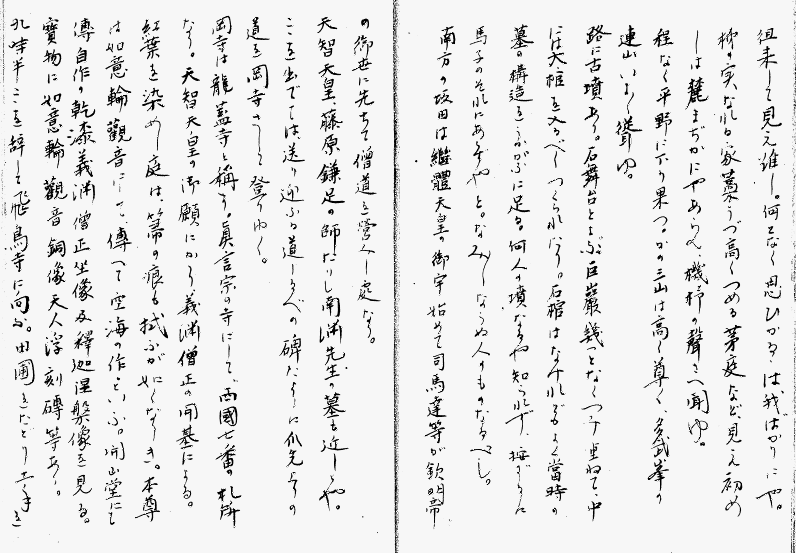 徂来して見え難し。何となく思ひかるゝは我ばかりにや。
柿の実なれる家藁うづ高くつめる茅庭など見え初め
しは麓まぢかにやあらん機杼の聲さへ聞ゆ。
程なく平野に下り果つ。かの三山は高く尊く、多武峯の
連山いよ〳〵聳ゆ。
路に古墳あり。石舞台とよぶ巨巌幾つとなくつみ重ねて、中
には大棺を入るべくつくられたり。石棺はなけれどもよく當時の
墓の構造をしのぶに足る。何人の墳なるや知られず、按ずるに
馬子のそれにあらずやと。なみ〳〵ならぬ人のものなるべし。
南方の坂田は繼體天皇の御宇始めて司馬達等が欽明帝
の御世に先ちて僧道を營みし處なり。
天智天皇、藤原鎌足の師たりし南渕先生の墓も近しとや。
こゝを出でては、送り迎ふる道しるべの碑たよりに爪先上りの
道を岡寺さして登りゆく。
岡寺は龍蓋寺と稱す。真言宗の寺にして、西國七番の札所
なり。天智天皇の御願にかゝり義渕僧正の開基による。
紅葉を染めし庭は、箒の痕も拭ふが如くなりき。本尊
は如意輪觀音にして、傳へて空海の作といふ。開山堂にて
傳自作の乾漆義渕僧正坐像及釋迦涅槃像を見る。
寶物に如意輪觀音銅像天人浮刻磚等あり。
九時半こゝを辞して飛鳥寺に向ふ。田圃をたどり